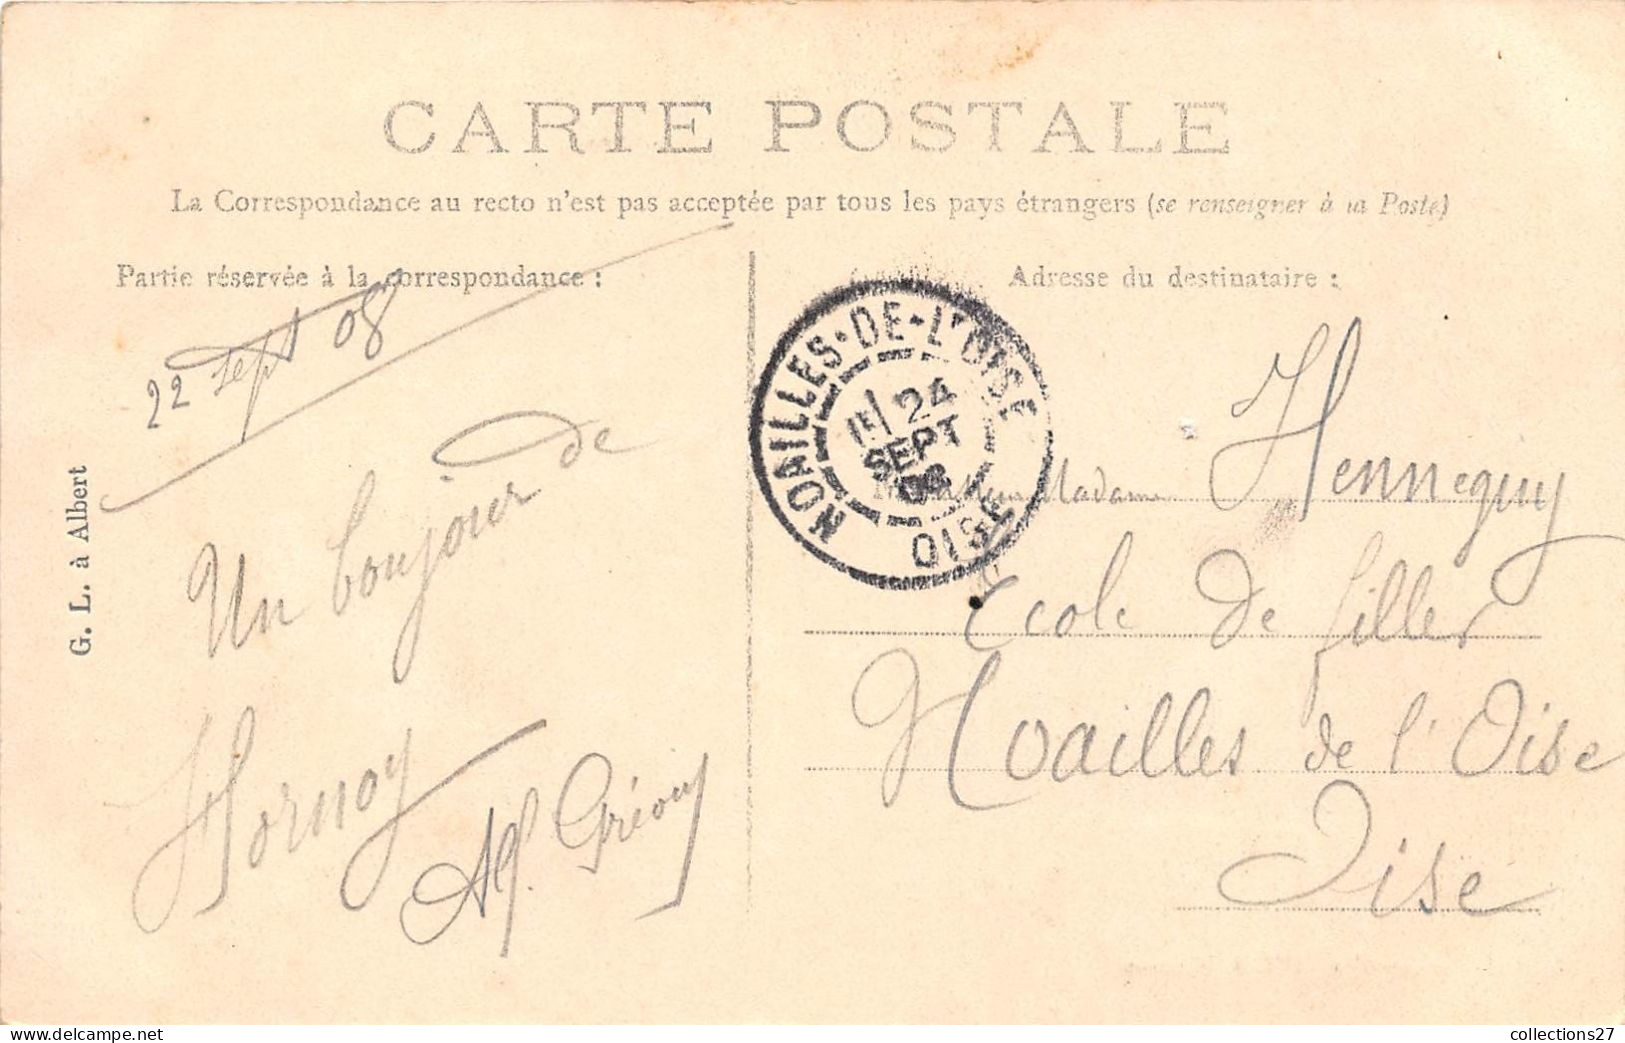 CARTE POSTALE
La Correspondance au recto n'est pas acceptée par tous les pays étrangers (se renseigner à la Poste)
Partie réservée à la correspondance :
22 sept 08
Un bonjour de
Hornoy
Alf.
G. L. à Albert
Adresse du destinataire :
NOAILLES-DE-L'OISE
24
SEPT
08
OISE
Madame Hennequy
Ecole de filles
Noailles de l'Oise
Oise
collections27